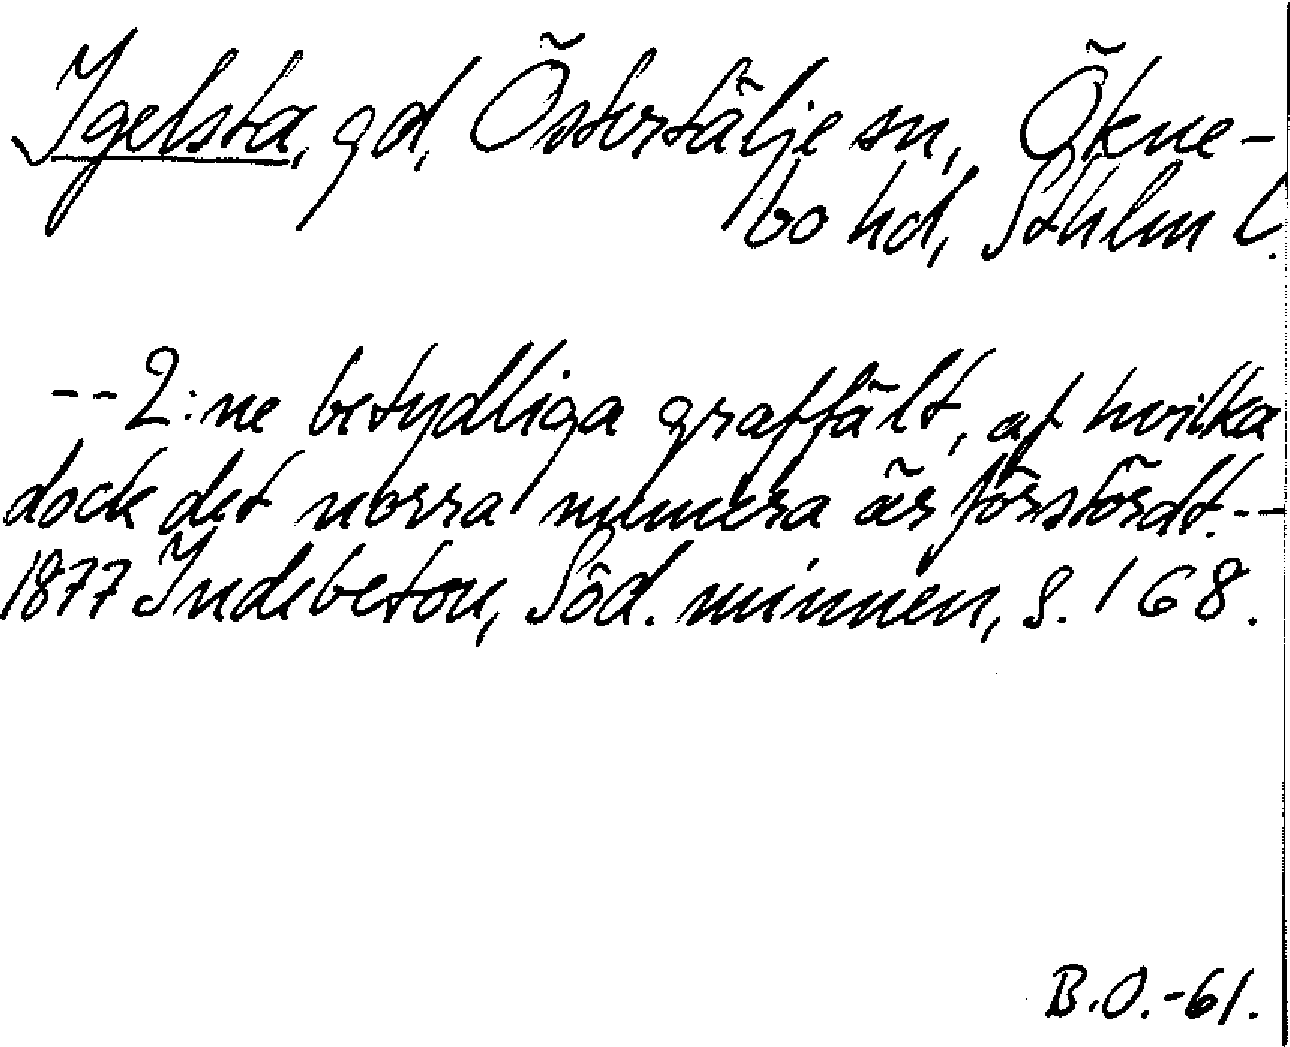 Igelsta, gd, Östertälje sn, Ökne-
bo hd, Sthlm l.
-- 2:ne betydliga graffält, af hvilka
dock det norra numera är förstördt. --
1877 Indebetou, Söd. minnen, s. 168.
B.O.-61.